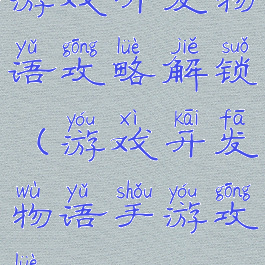 游戏开发物
yǔ gōng lüè jiě suǒ
语攻略解锁
yóu xì kāi fā
（游戏开发
wù yǔ shǒu yóu gōng
物语手游攻
lüè